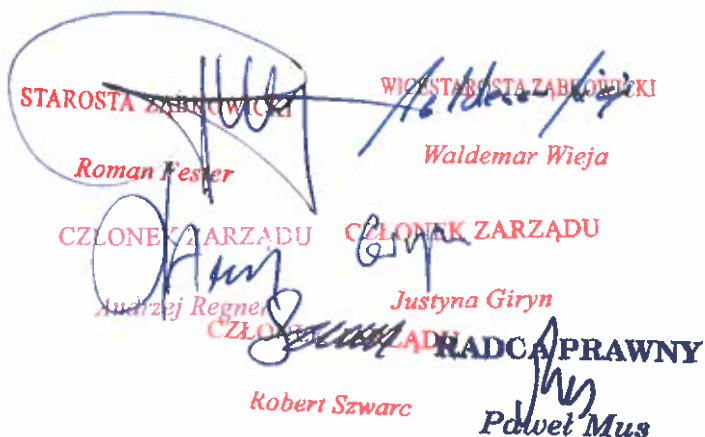 STAROSTA ZĄBKOWICKI
Roman Fester
WICESTAROSTA ZĄBKOWICKI
Waldemar Wieja
CZŁONEK ZARZĄDU
Andrzej Regner
CZŁONEK ZARZĄDU
Justyna Giryn
CZŁONEK ZARZĄDU
Robert Szwarc
RADCA PRAWNY
Paweł Mus